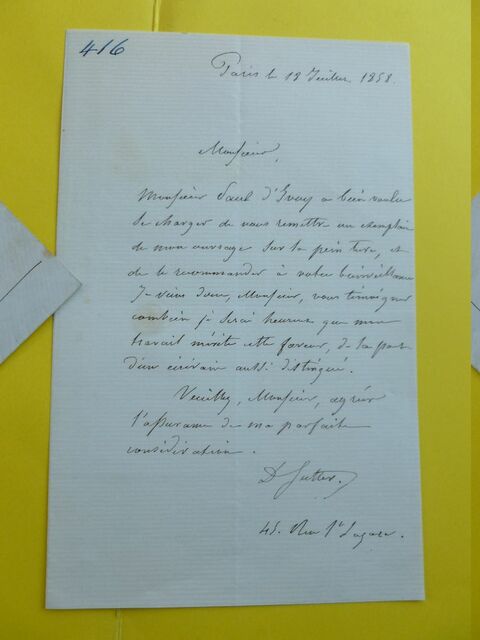 416
Paris le 12 Juillet 1858.
Monsieur,
Monsieur Paul d'Ivoy a bien voulu
se charger de vous remettre un exemplaire
de mon ouvrage sur la peinture, et
de le recommander à votre bienveillance
Je viens donc, Monsieur, vous témoigner
combien je serai heureux que mon
travail mérite cette faveur, de la part
d'un écrivain aussi distingué.
Veuillez, Monsieur, agréer
l'assurance de ma parfaite
considération.
D Sutter.
45. Rue St Lazare.